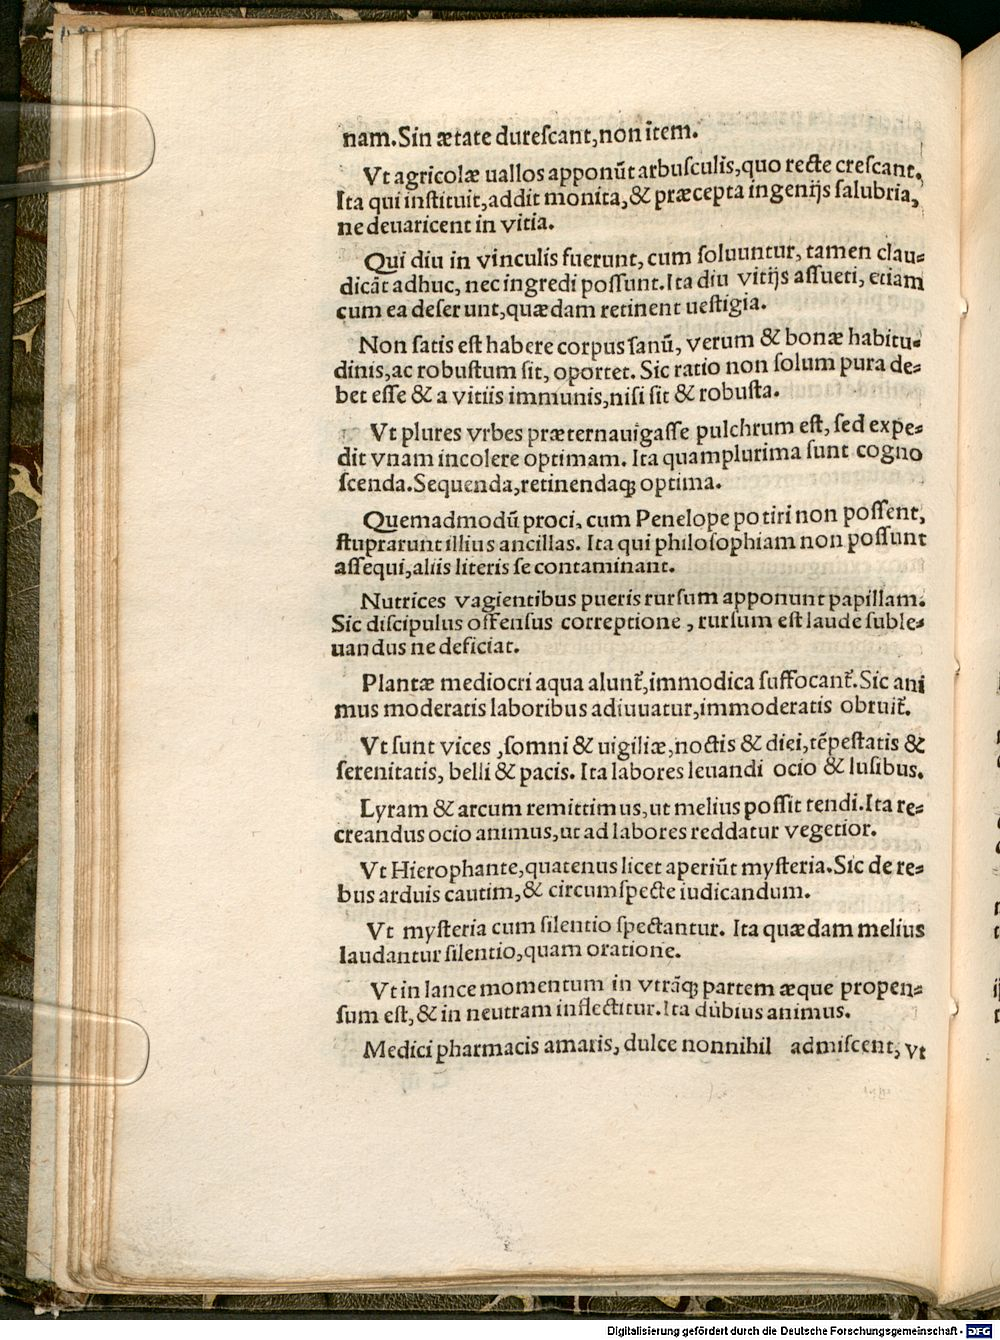 nam.Sin ætate durescant,non item.
Vt agricolæ uallos apponūt arbusculis,quo recte crescant.
Ita qui instituit,addit monita,& præcepta ingenijs salubria,
ne deuaricent in vitia.
Qui diu in vinculis fuerunt, cum soluuntur, tamen clau-
dicāt adhuc, nec ingredi possunt.Ita diu vitijs assueti, etiam
cum ea deserunt,quædam retinent uestigia.
Non satis est habere corpus sanū, verum & bonæ habitu-
dinis,ac robustum sit, oportet. Sic ratio non solum pura de-
bet esse & a vitiis immunis,nisi sit & robusta.
Vt plures vrbes præternauigasse pulchrum est, sed expe-
dit vnam incolere optimam. Ita quamplurima sunt cogno
scenda.Sequenda,retinendaqꝫ optima.
Quemadmodū proci, cum Penelope potiri non possent,
stuprarunt illius ancillas. Ita qui philosophiam non possunt
assequi,aliis literis se contaminant.
Nutrices vagientibus pueris rursum apponunt papillam.
Sic discipulus offensus correptione, rursum est laude suble-
uandus ne deficiat.
Plantæ mediocri aqua alunt̃,immodica suffocant̃.Sic ani
mus moderatis laboribus adiuuatur,immoderatis obruit̃.
Vt sunt vices ,somni & uigiliæ,noctis & diei,tēpestatis &
serenitatis, belli & pacis. Ita labores leuandi ocio & lusibus.
Lyram & arcum remittimus,ut melius possit tendi.Ita re-
creandus ocio animus,ut ad labores reddatur vegetior.
Vt Hierophante,quatenus licet aperiūt mysteria.Sic de re-
bus arduis cautim,& circumspecte iudicandum.
Vt mysteria cum silentio spectantur. Ita quædam melius
laudantur silentio,quam oratione.
Vt in lance momentum in vtrāqꝫ partem æque propen-
sum est,& in neutram inflectitur.Ita dubius animus.
Medici pharmacis amaris, dulce nonnihil admiscent, vt
Digitalisierung gefördert durch die Deutsche Forschungsgemeinschaft - DFG